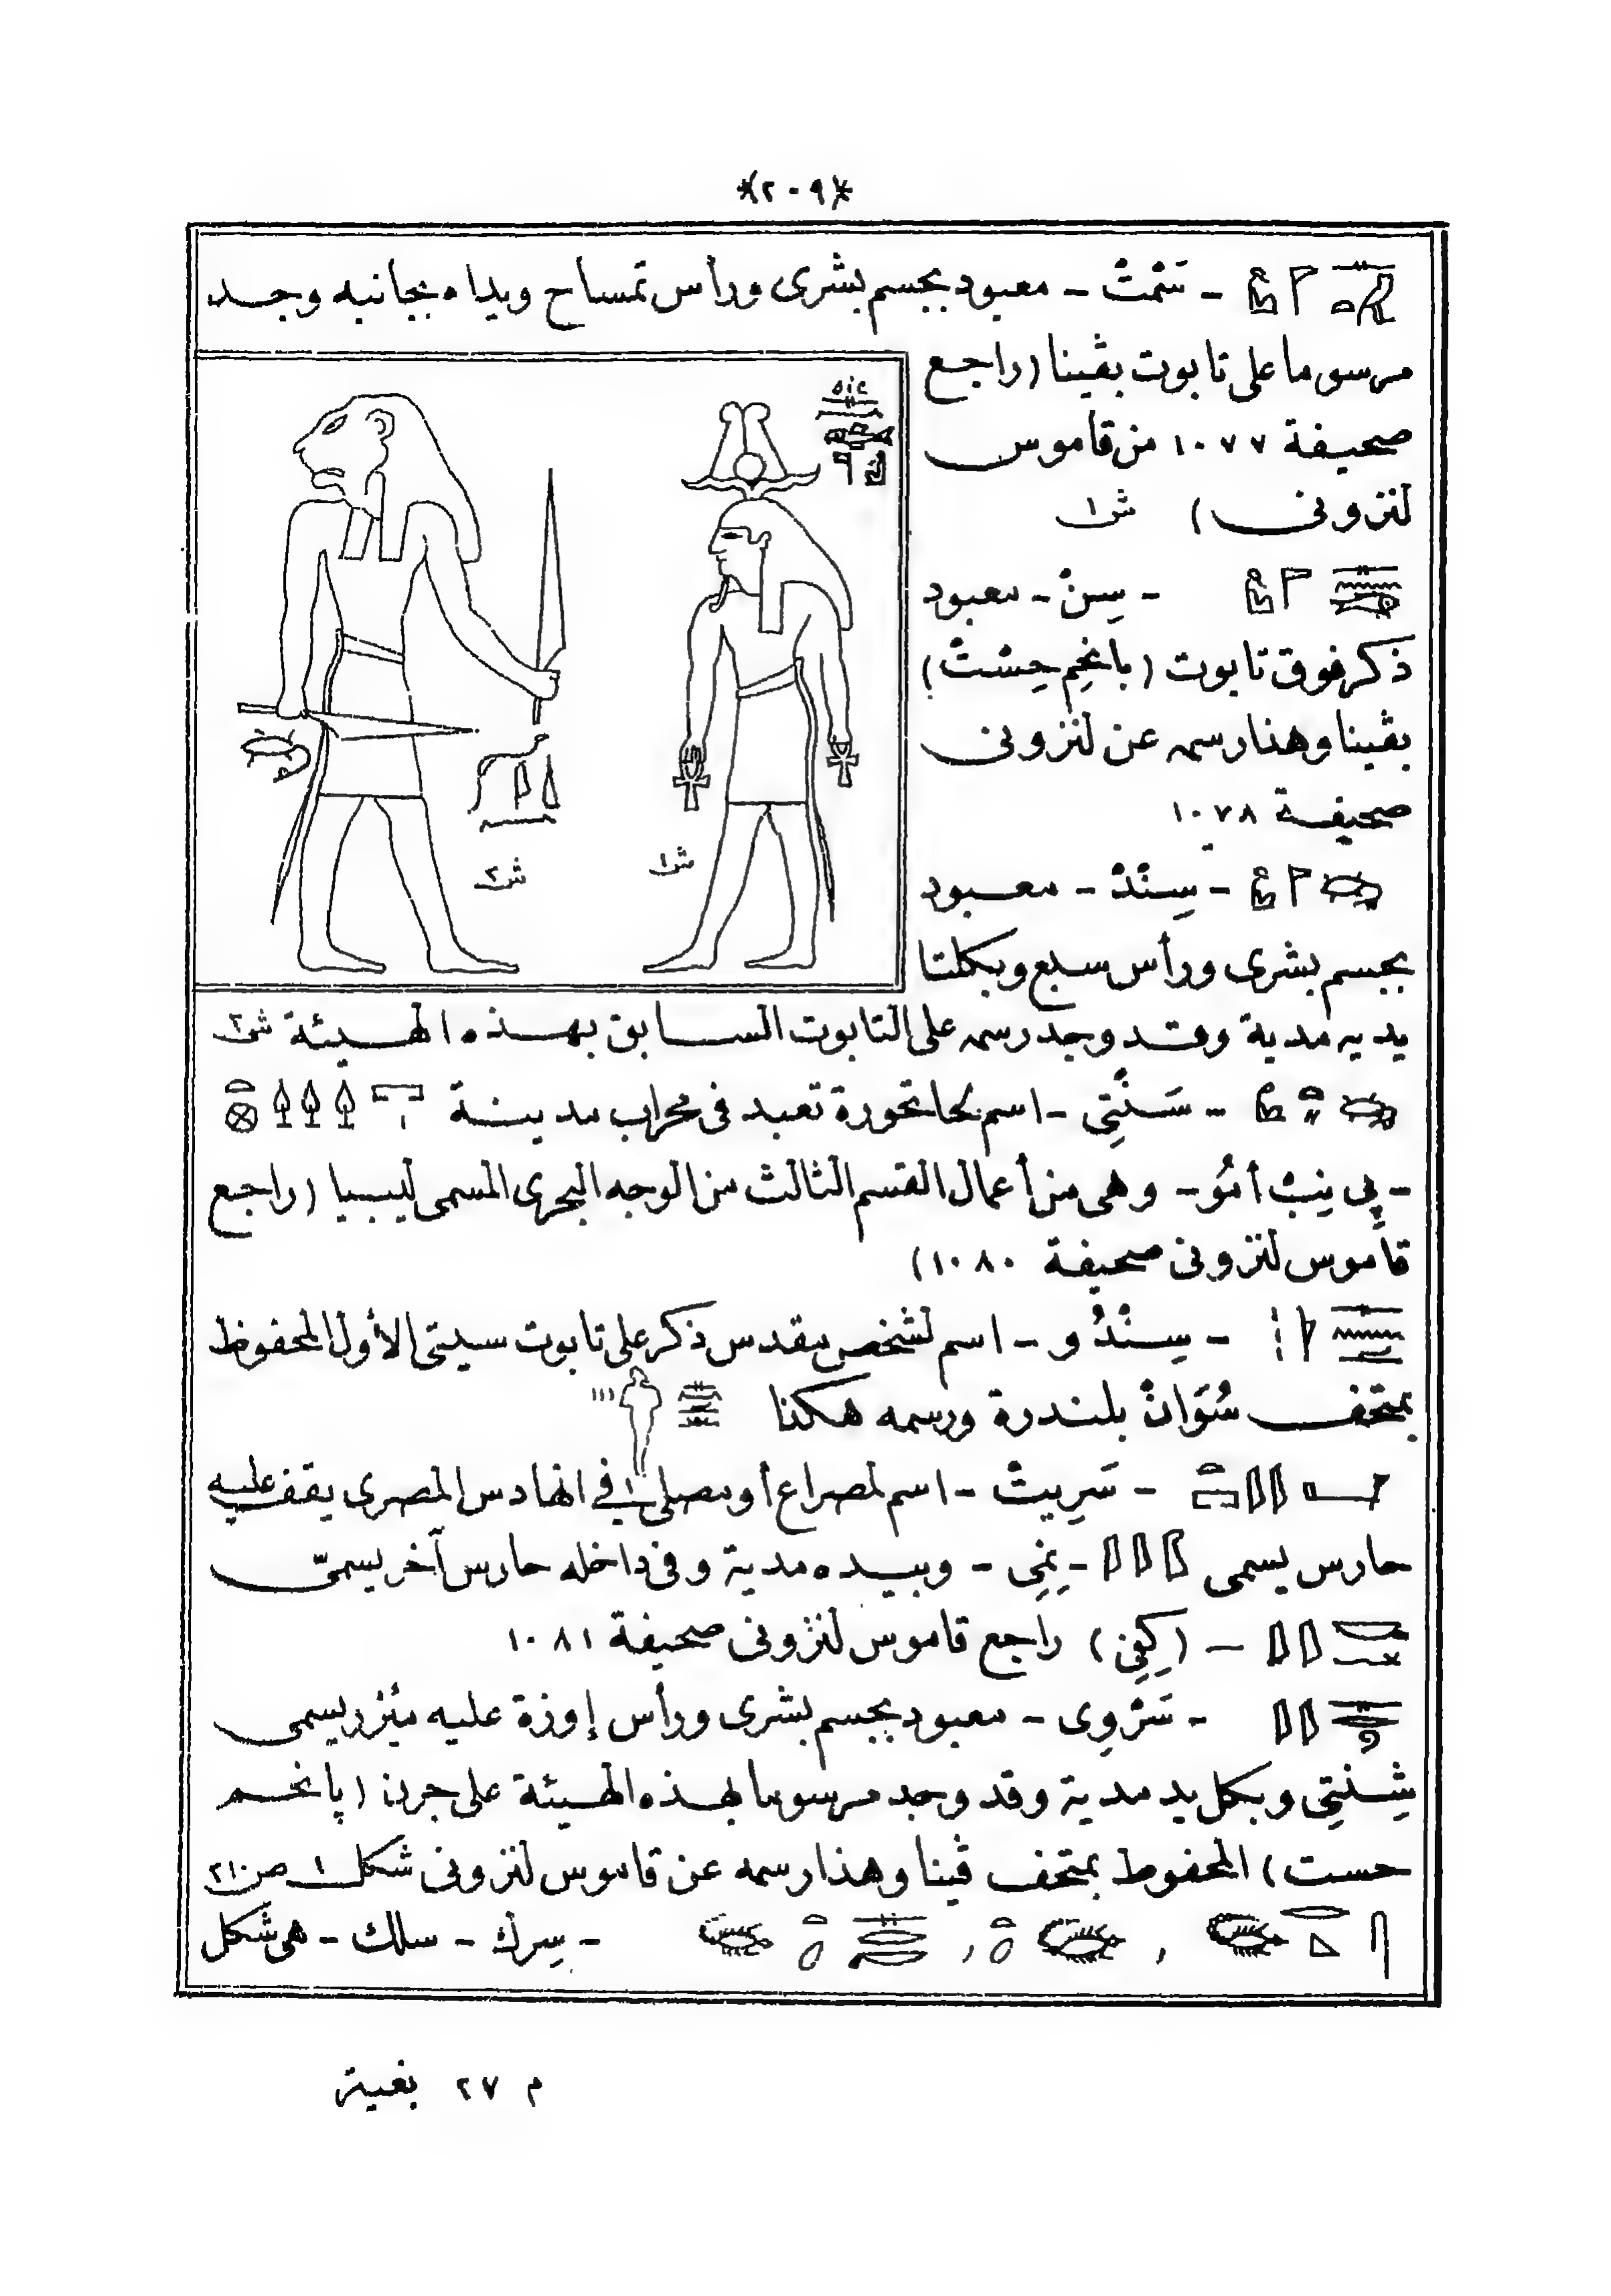 *(٢٠٩)*
- سَمْتْ - معبود بجسم بشرى ورأس تمساح ويداه بجانبه وجد
مرسوما على تابوت بڤينا (راجع
صحيفة ١٠٧٧ من قاموس
لنزونى) ش١
- سِنْ - معبود
ذكر فوق تابوت (بانخِم حِسْتْ)
بڤينا وهذا رسمه عن لنزونى
صحيفة ١٠٧٨
- سِنْدْ - معبود
بجسم بشرى ورأس سبع وبكلتا
يديه مدية وقد وجد رسمه على التابوت السابق بهذه الهيئة ش٢
ش١
ش٢
- سَنْتِى - اسم لحاتحورة تعبد فى محراب مدينة
- پى نِبْ أمُو - وهى من أعمال القسم الثالث من الوجه البحرى المسمى ليبيا (راجع
قاموس لنزونى صحيفة ١٠٨٠)
- سِنْدُو - اسم لشخص مقدس ذكر على تابوت سيتى الأول المحفوظ
بمتحف سُوَانْ بلندرة ورسمه هكذا
- سَرِيتْ - اسم لمصراع أو مصلى فى الهادس المصرى يقف عليه
حارس يسمى - نِمِى - وبيده مدية وفى داخله حارس آخر يسمىّ
- (كِفِى) راجع قاموس لنزونى صحيفة ١٠٨١
- سَرْوِى - معبود بجسم بشرى ورأس إوزة عليه مئزر يسمى
شِنْتِى وبكل يد مدية وقد وجد مرسوما بهذه الهيئة على جرن (پانخم
حست) المحفوظ بمتحف ڤينا وهذا رسمه عن قاموس لنزونى شكل ١ ص ٢١٠
- سِرك - سلك - هى شكل
م ٢٧ بغية